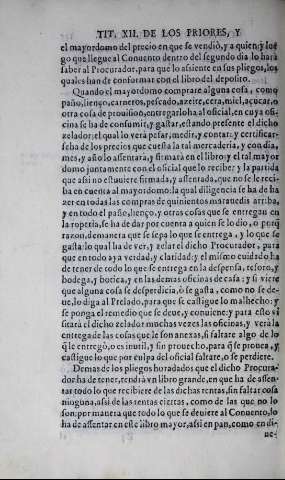 TIT. XII. DE LOS PRIORES, Y
el mayordomo del precio en que se vendiò, y a quien; y lue
go que llegue al Conuento dentro del segundo dia lo harà
saber al Procurador, para que lo assiente en sus pliegos, los
quales han de conformar con el libro del deposito.
Quando el mayordomo comprare alguna cosa, como
paño, lienço, carneros, pescado, azeite, cera, miel, açucar, o
otra cosa de prouision, entregarloha al oficial, en cuya ofi
cina se ha de consumir, y gastar, estando presente el dicho
zelador: el qual lo verà pesar, medir, y contar: y certificar-
seha de los precios que cuesta la tal mercaderia, y con dia,
mes, y año lo assentarà, y firmarà en el libro: y el tal mayor
domo juntamente con el oficial que lo recibe: y la partida
que assi no estuuiere firmada, y assentada, que no se le reci-
ba en cuenta al mayordomo: la qual diligencia se ha de ha
zer en todas las compras de quinientos marauedis arriba,
y en todo el paño, lienço, y otras cosas que se entregan en
la roperia, se ha de dar por cuenta a quien se lo dio, o por
razon, demanera que se sepa lo que se entrega, y lo que se
gasta: lo qual ha de ver, y zelar el dicho Procurador, para
que en todo aya verdad, y claridad: y el mismo cuidado ha
de tener de todo lo que se entrega en la despensa, tesoro, y
bodega, y botica, y en las demas oficinas de casa: y si viere
que alguna cosa se desperdicia, ò se gasta, como no se de-
ue, lo diga al Prelado, para que se castigue lo malhecho: y
se ponga el remedio que se deue, y conuiene: y para esto vi
sitarà el dicho zelador muchas vezes las oficinas, y verà la
entrega de las cosas que le son anexas, si faltare algo de lo
que le entregò, o es inutil, y sin prouecho, para que se prouea, y
castigue lo que por culpa del oficial faltare, o se perdiere.
Demas de los pliegos horadados que el dicho Procura-
dor ha de tener, tendrà vn libro grande, en que ha de assen-
tar todo lo que recibiere de las dichas rentas, sin faltar cosa
ninguna, assi de las rentas ciertas, como de las que no lo
son: por manera que todo lo que se deuiere al Conuento, lo
ha de assentar en este libro mayor, assi en pan, como en di-
ne-